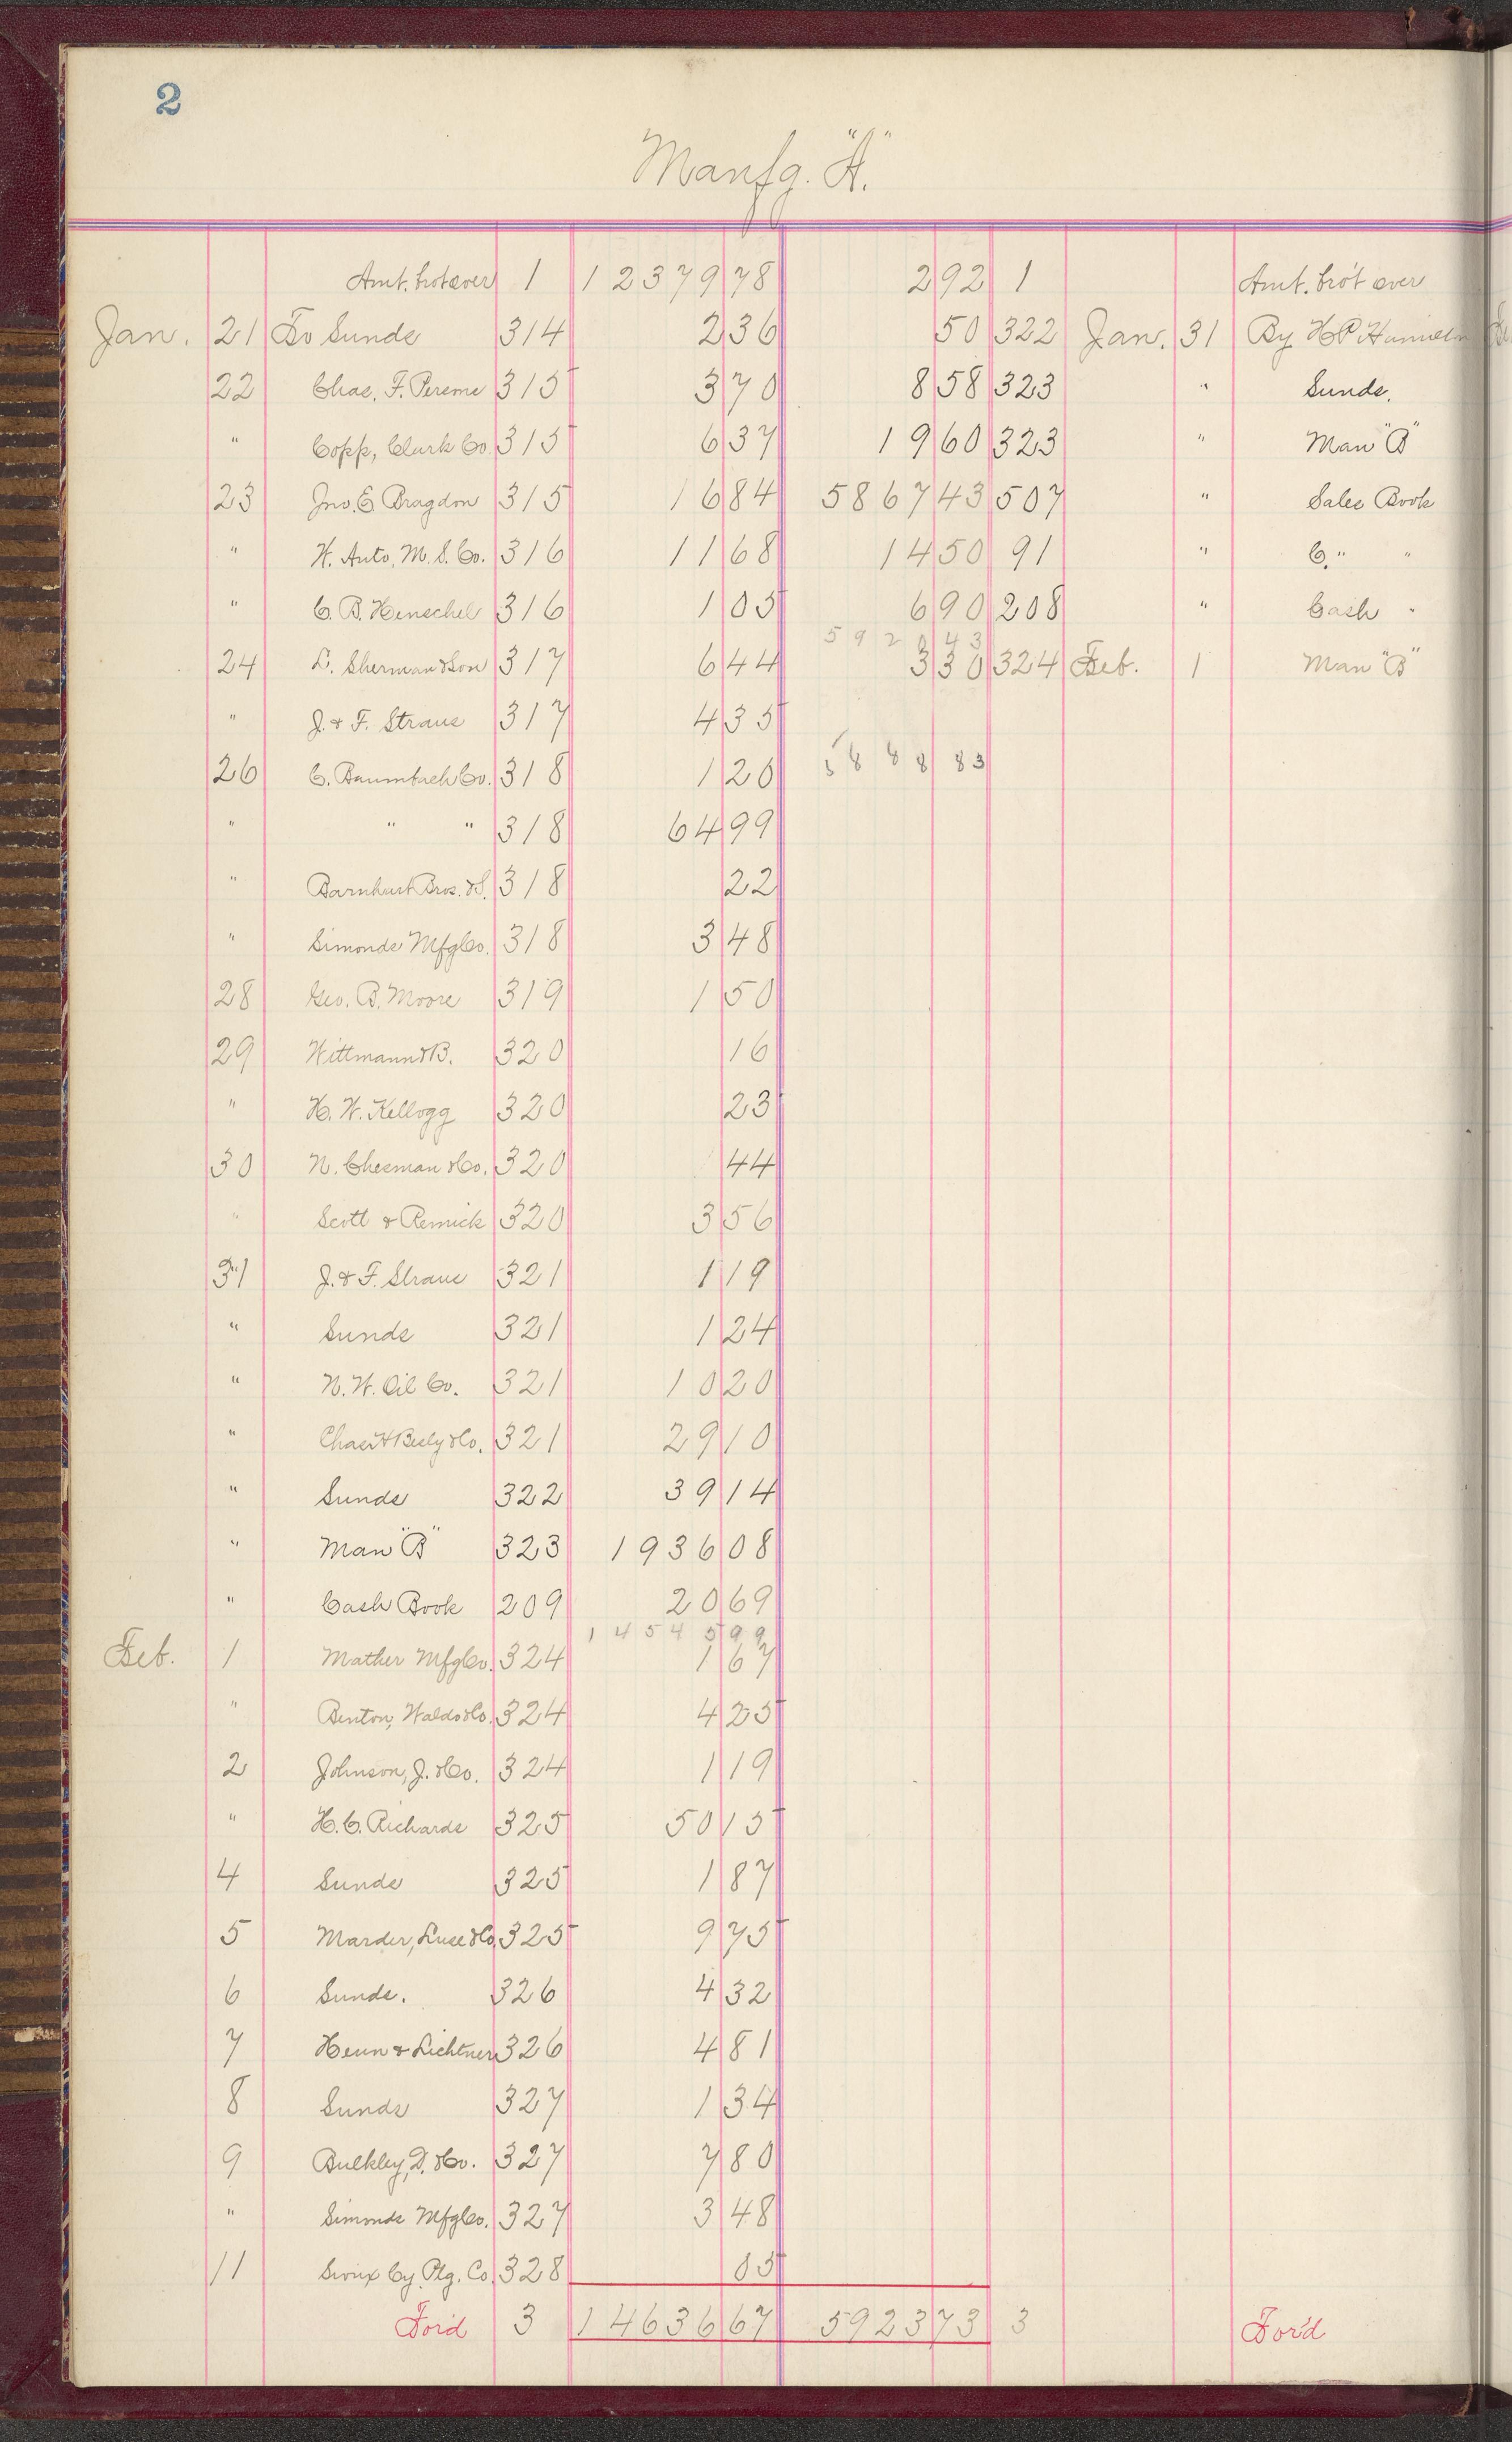 2
Manfg. "A."
Amt. brot over 1 12379 78 2 92 1 Amt. bro't over
Jan. 21 To Sunds 314 2 36 50 322 Jan. 31 By H P
22 Chas. F. 315 3 70 8 58 323 " Sunds.
" Copp, Clark Co. 315 6 37 19 60 323 " Man "B"
23 Jno. E Bragdon 315 16 84 5867 43 507 " Sales Book
" W. Auto. M. S. Co. 316 11 68 14 50 91 " C. " "
" C. B. Henschel 316 1 05 6 90 208 " Cash "
5920 43
24 L. Sherman & Son 317 6 44 3 30 324 Feb. 1 Man "B"
" J. & F. Straus 317 4 35
26 C. Baumbach Co. 318 1 20 5888 83
" " " 318 64 99
" Barnhart Bros. & S. 318 22
" Simonds Mfg Co. 318 3 48
28 Geo. B. Moore 319 1 50
29 Wittmann & B. 320 16
" H. W. Kellogg 320 23
30 N. Chesman & Co. 320 44
" Scott & Remick 320 3 56
31 J. & F. Straus 321 1 19
" Sunds 321 1 24
" N. W. Oil Co. 321 10 20
" Chas H Besly & Co. 321 29 10
" Sunds 322 39 14
" Man "B" 323 1936 08
" Cash Book 209 20 69
14545 99
Feb. 1 Mather Mfg Co. 324 1 67
" Benton, Waldo & Co. 324 4 25
2 Johnson, J. & Co. 324 1 19
" H. C. Richards 325 50 15
4 Sunds 325 1 87
5 Marder, Luse & Co. 325 9 75
6 Sunds. 326 4 32
7 Henn & Lichtner 326 4 81
8 Sunds 327 1 34
9 Bulkley, D. & Co. 327 7 80
" Simonds Mfg Co. 327 3 48
11 Sioux Cy. Ptg. Co. 328 05
For'd 3 14636 67 5923 73 3 For'd